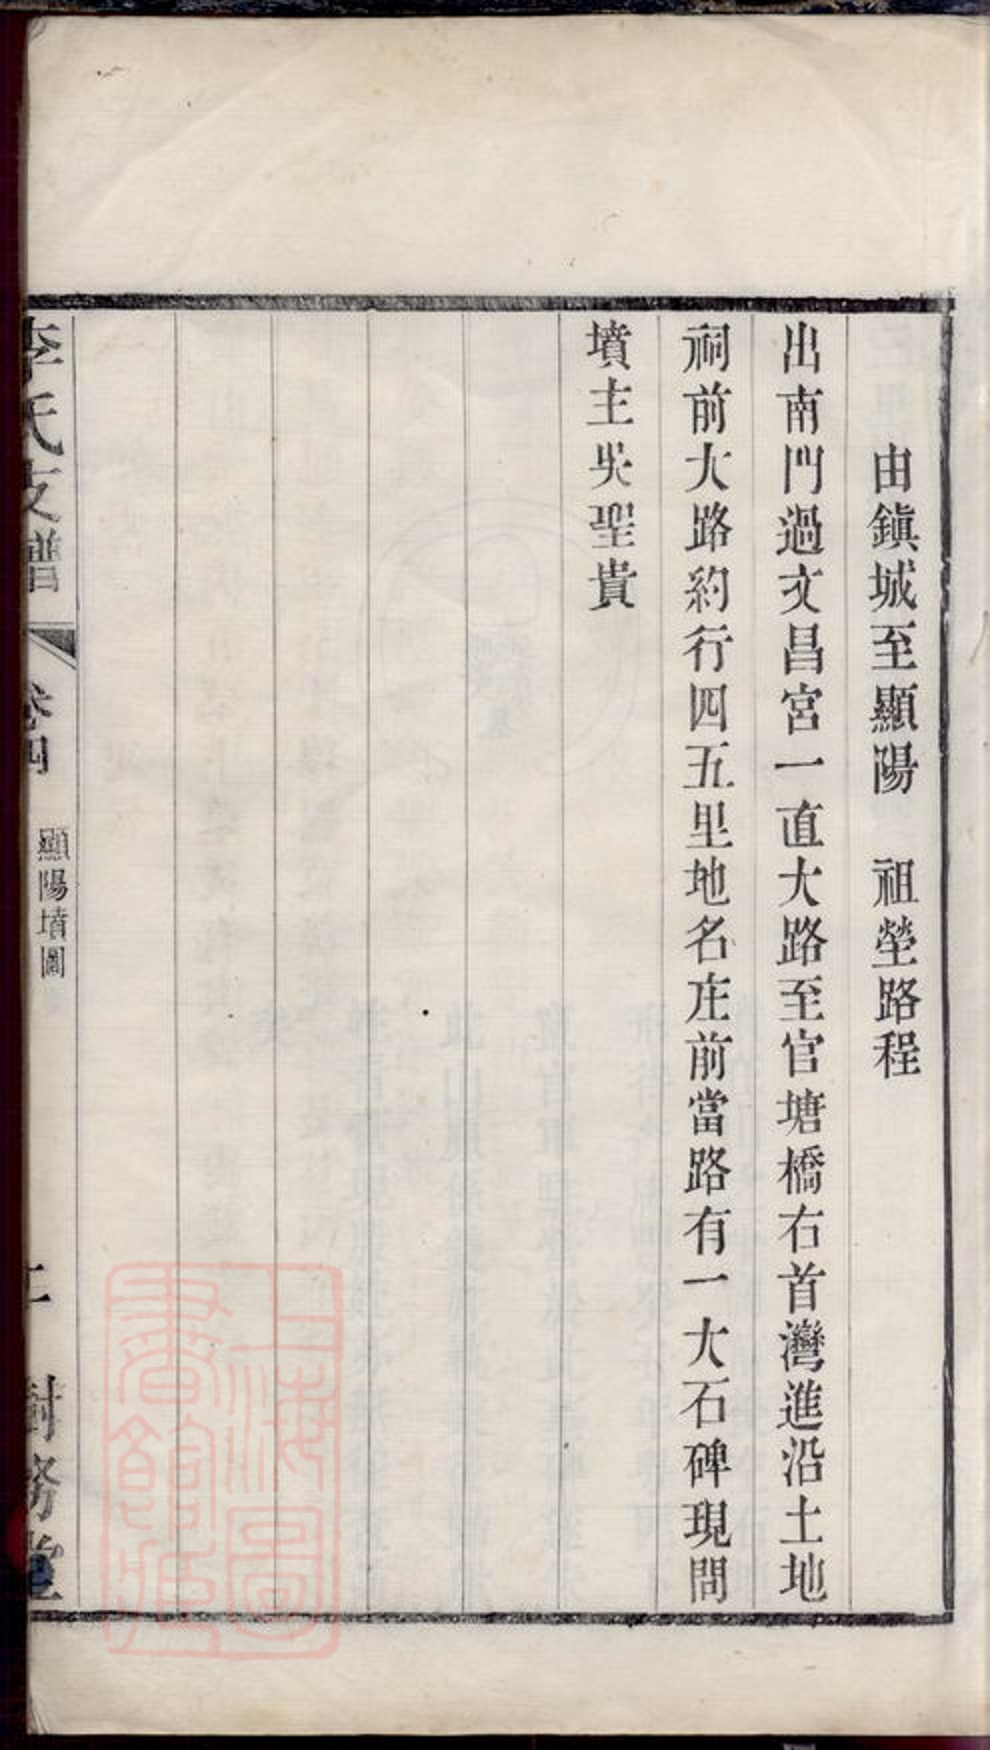 由鎮城至顯陽　祖塋路程
出南門過文昌宮一直大路至官塘橋右首灣進沿土地
祠前大路約行四五里地名庄前當路有一大石碑現問
墳主吳聖貴
李氏支譜　卷四　顯陽墳圖　二　樹務堂
上海圖書館藏